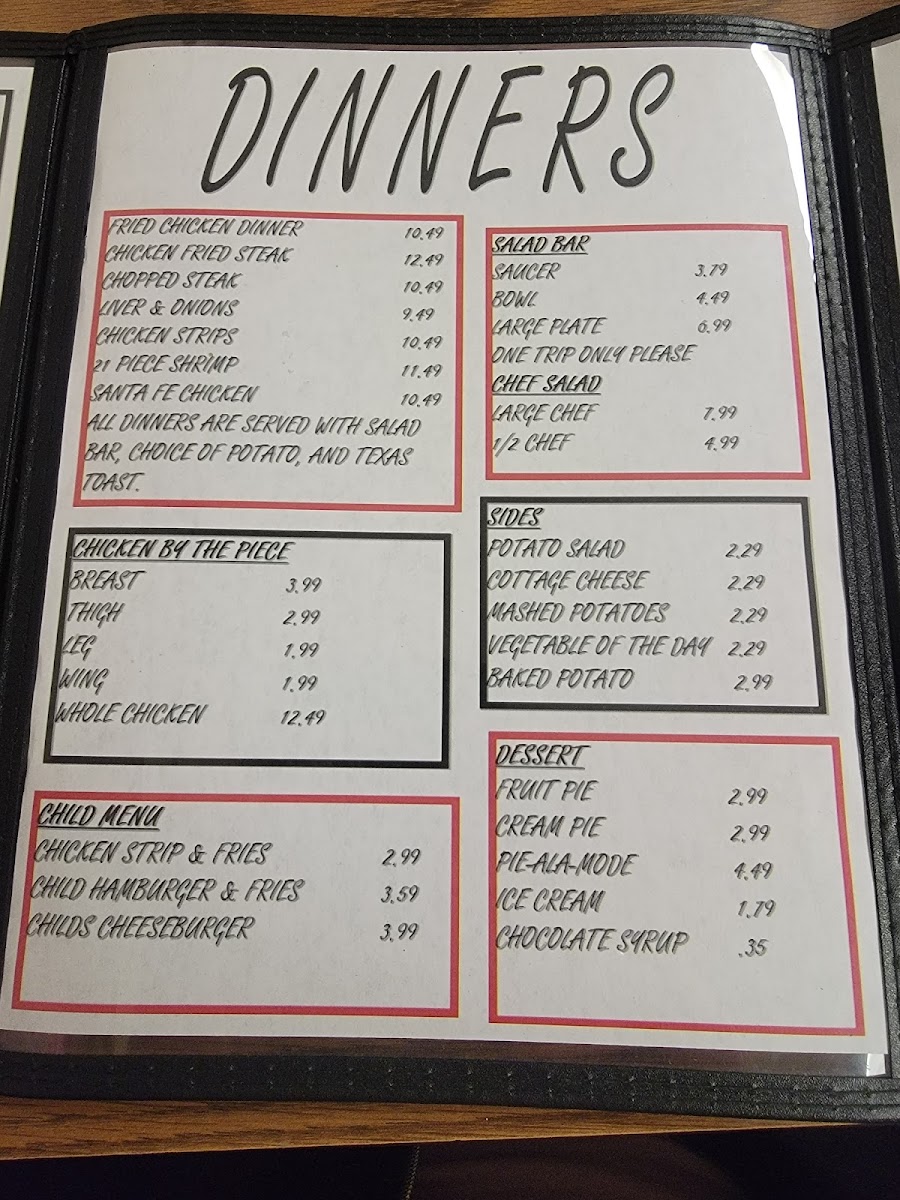 DINNERS
FRIED CHICKEN DINNER 10.49
CHICKEN FRIED STEAK 12.49
CHOPPED STEAK 10.49
LIVER & ONIONS 9.49
CHICKEN STRIPS 10.49
21 PIECE SHRIMP 11.49
SANTA FE CHICKEN 10.49
ALL DINNERS ARE SERVED WITH SALAD
BAR, CHOICE OF POTATO, AND TEXAS
TOAST.
CHICKEN BY THE PIECE
BREAST 3.99
THIGH 2.99
LEG 1.99
WING 1.99
WHOLE CHICKEN 12.49
CHILD MENU
CHICKEN STRIP & FRIES 2.99
CHILD HAMBURGER & FRIES 3.59
CHILDS CHEESEBURGER 3.99
SALAD BAR
SAUCER 3.79
BOWL 4.49
LARGE PLATE 6.99
ONE TRIP ONLY PLEASE
CHEF SALAD
LARGE CHEF 7.99
1/2 CHEF 4.99
SIDES
POTATO SALAD 2.29
COTTAGE CHEESE 2.29
MASHED POTATOES 2.29
VEGETABLE OF THE DAY 2.29
BAKED POTATO 2.99
DESSERT
FRUIT PIE 2.99
CREAM PIE 2.99
PIE-ALA-MODE 4.49
ICE CREAM 1.79
CHOCOLATE SYRUP .35